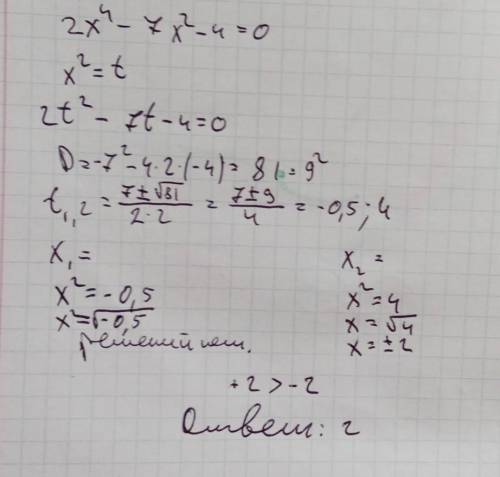 2x⁴ - 7x² - 4 = 0
x² = t
2t² - 7t - 4 = 0
D = -7² - 4·2·(-4) = 81 = 9²
t₁,₂ = (7 ± √81)/(2·2) = (7 ± 9)/4 = -0,5; 4
x₁ =
x² = -0,5
x² = √-0,5
решений нет.
x₂ =
x² = 4
x = √4
x = ±2
+2 > -2
Ответ: 2